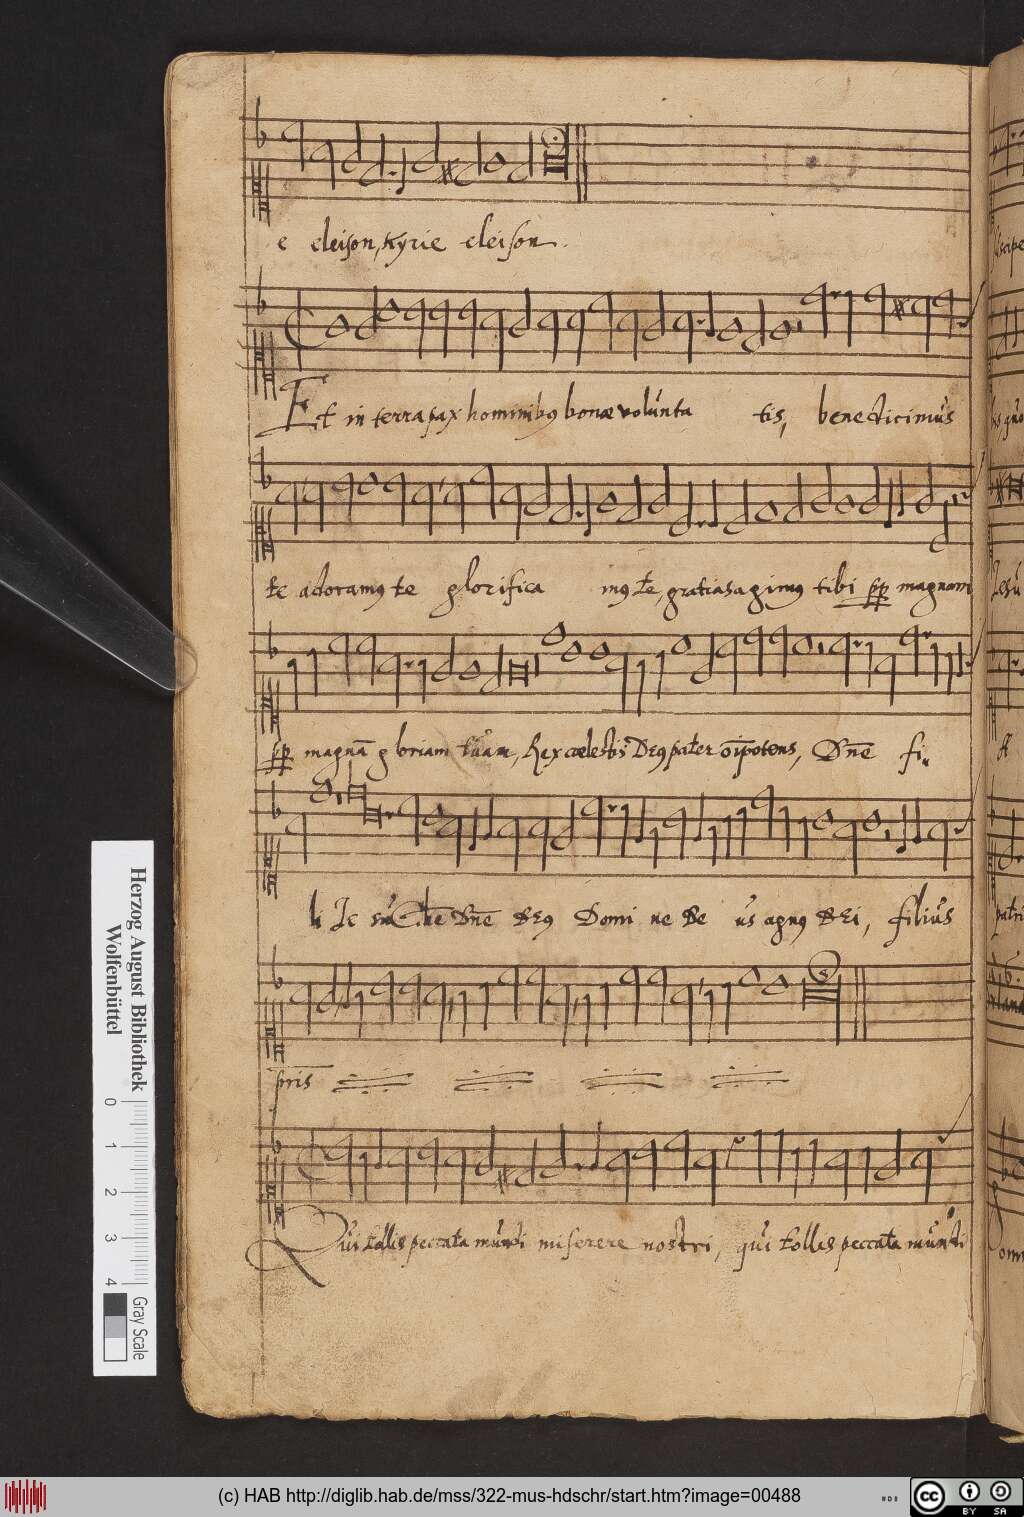 e eleison, Kyrie eleison.
Et in terra pax hominibꝯ bonæ volunta tis, benedicimus
te adoramꝯ te glorifica mꝯ te, gratias agimꝯ tibi pp magnam
pp magnā gloriam tuam, Rex cœlestis Deꝯ pater oīpotens, Dn̄e fi
li Je Dn̄e Deꝯ Domi ne De us agnꝯ Dei, filius
pr̄is
Qui tollis peccata mundi miserere nostri, qui tollis peccata mundi
Herzog August Bibliothek
Wolfenbüttel
0 1 2 3 4
Gray Scale
(c) HAB http://diglib.hab.de/mss/322-mus-hdschr/start.htm?image=00488
cc BY SA